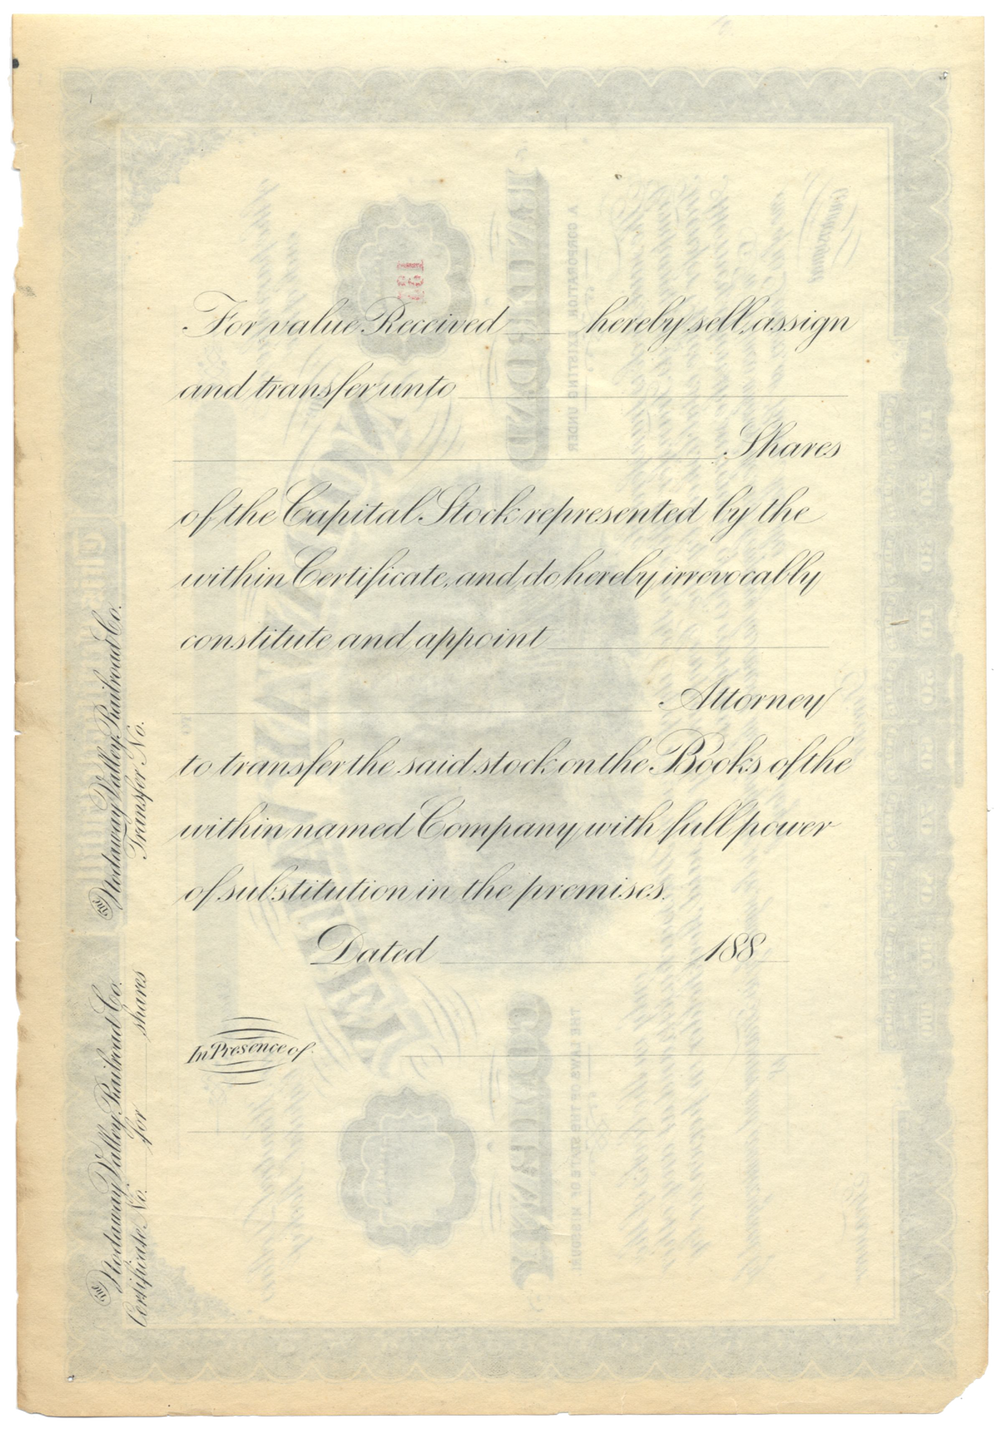 For value Received ____ hereby sell, assign
and transfer unto
Shares
of the Capital Stock represented by the
within Certificate, and do hereby irrevocably
constitute and appoint
Attorney
to transfer the said stock on the Books of the
within named Company, with full power
of substitution in the premises.
Dated 188
In Presence of
The Nodaway Valley Railroad Co.
Transfer No.
The Nodaway Valley Railroad Co.
Certificate No. for shares